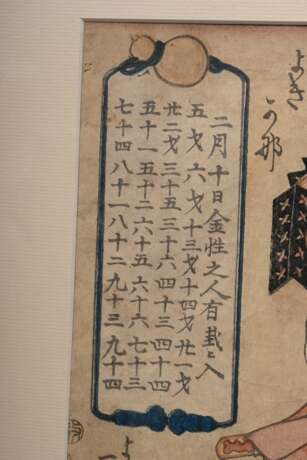 よき
か那
二月十日金性之人有卦ニ入
五才六才十三才十四才廿一才
廿二才三十五三十六四十三四十四
五十一五十二六十五六十六七十三
七十四八十一八十二九十三九十四